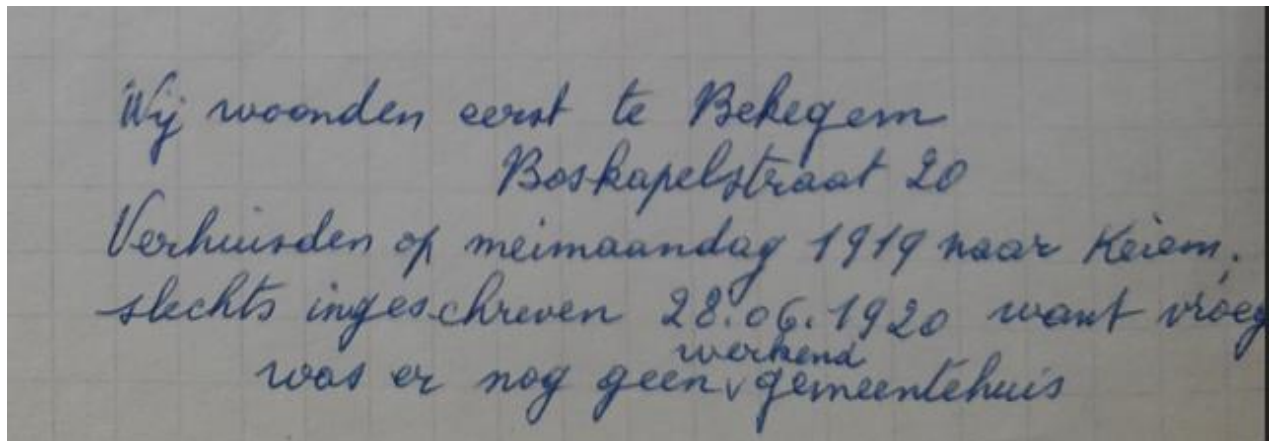 Wij woonden eerst te Bekegem
Boskapelstraat 20
Verhuisden op meimaandag 1919 naar Keiem,
slechts ingeschreven 28.06.1920 want vroeg
werkend
was er nog geen v gemeentehuis